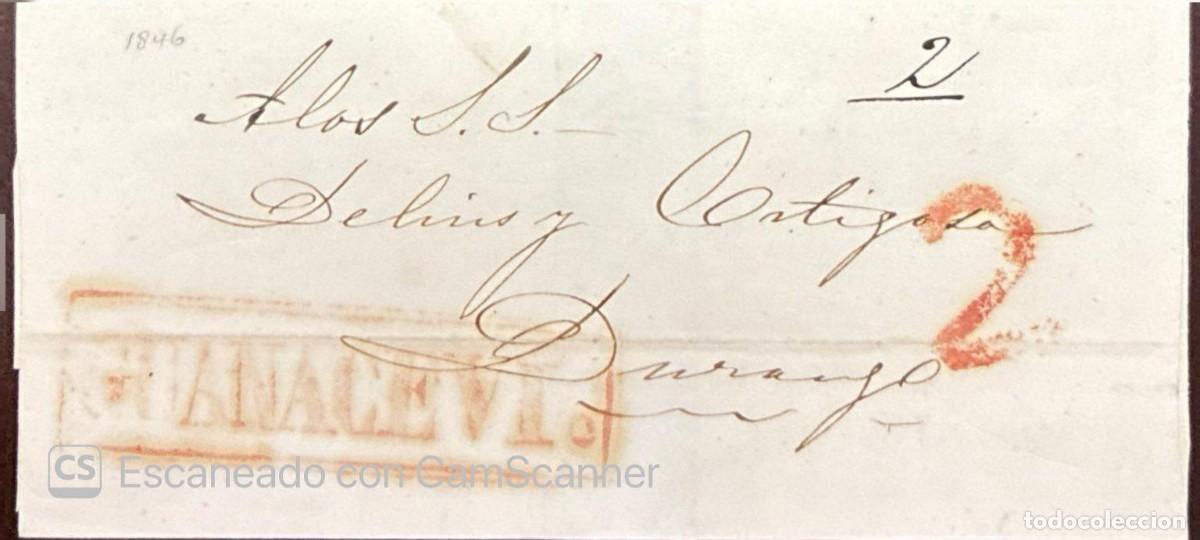 1846
2
A los S. S.
Delius y Ortigosa
2
Durango
GUANACEVI.
CS Escaneado con CamScanner
todocoleccion